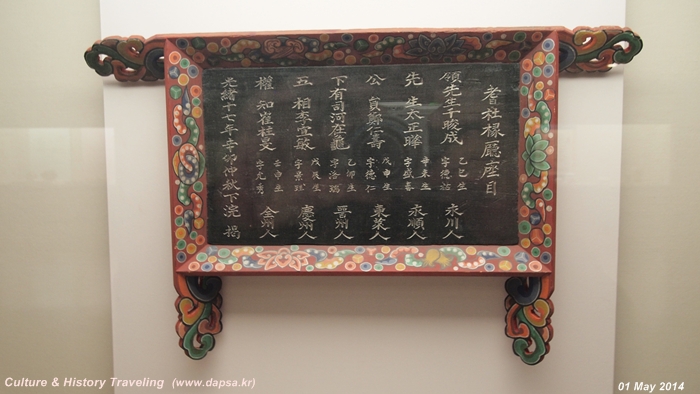 耆社椽廳座目
領先生千畯成 乙巳生 字德 永川人
先 生太正暐 辛未生 字盛 永順人
公 員鄭仁壽 戊申生 字德仁 東萊人
下有司河在龜 乙卯生 字洛瑞 晋州人
五 相李宜敏 戊辰生 字景 慶州人
權 知崔桂旻 壬申生 字允 全州人
光緖十七年辛卯仲秋下浣 揭
Culture & History Traveling (www.dapsa.kr)
01 May 2014